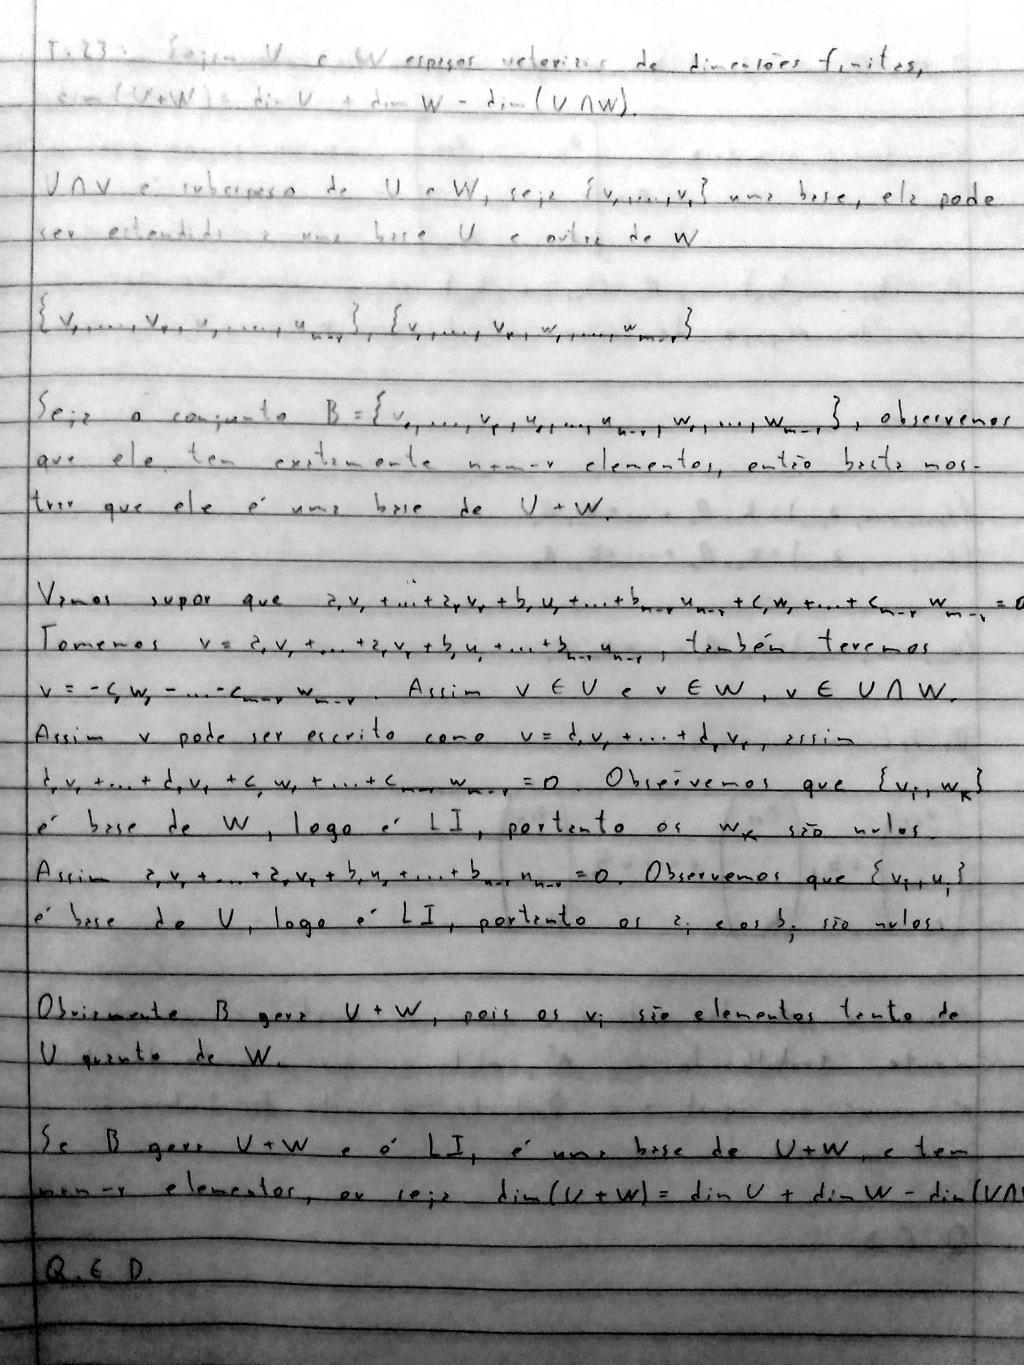 T.23: Sejam U e W espaços vetoriais de dimensões finitas,
dim(U+W) = dim U + dim W - dim(U∩W).
U∩V é subespaço de U e W, seja {v₁,...,vᵣ} uma base, ela pode
ser estendida a uma base U e outra de W
{v₁,...,vᵣ,u₁,...,uₙ₋ᵣ}, {v₁,...,vᵣ,w₁,...,wₘ₋ᵣ}
Seja o conjunto B={v₁,...,vᵣ,u₁,...,uₙ₋ᵣ,w₁,...,wₘ₋ᵣ}, observemos
que ele tem exatamente n+m-r elementos, então basta mos-
trar que ele é uma base de U+W.
Vamos supor que a₁v₁+...+aᵣvᵣ+b₁u₁+...+bₙ₋ᵣuₙ₋ᵣ+c₁w₁+...+cₘ₋ᵣwₘ₋ᵣ=0
Tomemos v=a₁v₁+...+aᵣvᵣ+b₁u₁+...+bₙ₋ᵣuₙ₋ᵣ, também teremos
v=-c₁w₁-...-cₘ₋ᵣwₘ₋ᵣ. Assim v∈U e v∈W, v∈U∩W.
Assim v pode ser escrito como v=d₁v₁+...+dᵣvᵣ, assim
d₁v₁+...+dᵣvᵣ+c₁w₁+...+cₘ₋ᵣwₘ₋ᵣ=0. Observemos que {vᵢ,wₖ}
é base de W, logo é LI, portanto os wₖ são nulos.
Assim a₁v₁+...+aᵣvᵣ+b₁u₁+...+bₙ₋ᵣuₙ₋ᵣ=0. Observemos que {vᵢ,uⱼ}
é base de U, logo é LI, portanto os aᵢ e os bⱼ são nulos.
Obviamente B gera U+W, pois os vᵢ são elementos tanto de
U quanto de W.
Se B gera U+W e é LI, é uma base de U+W, e tem
n+m-r elementos, ou seja dim(U+W) = dim U + dim W - dim(U∩W
Q.E D.